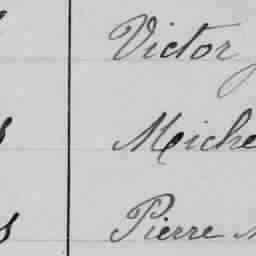 Victor
Miche
Pierre